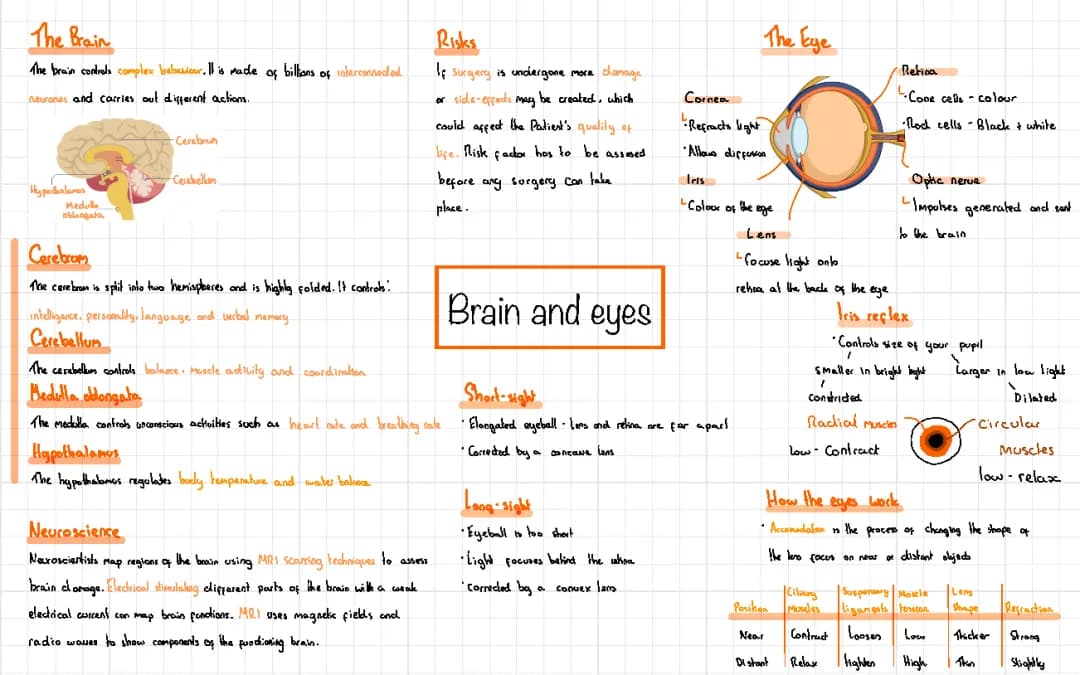 The Brain
The brain controls complex behaviour. It is made of billions of interconnected
neurones and carries out different actions.
Cerebrum
Cerebellum
Hypothalamus
Medulla
oblongata
Cerebrum
The cerebrum is split into two hemispheres and is highly folded. It controls:
intelligence, personality, language and verbal memory
Cerebellum
The cerebellum controls balance, muscle activity and coordination
Medulla oblongata
The medulla controls unconscious activities such as heart rate and breathing rate
Hypothalamus
The hypothalamus regulates body temperature and water balance
Neuroscience
Neuroscientists map regions of the brain using MRI scanning techniques to assess
brain damage. Electrical stimulating different parts of the brain with a weak
electrical current can map brain functions. MRI uses magnetic fields and
radio waves to show components of the functioning brain.
Risks
If surgery is undergone more damage
or side-effects may be created, which
could affect the Patient's quality of
life. Risk factor has to be assessed
before any surgery can take
place.
Brain and eyes
Short-sight
· Elongated eyeball - lens and retina are far apart
· Corrected by a concave lens
Long-sight
· Eyeball is too short
· Light focuses behind the retina
· corrected by a convex lens
The Eye
Cornea
· Refracts light
· Allows diffusion
Iris
Colour of the eye
Lens
focuse light onto
retina at the back of the eye
Retina
· Cone cells - colour
· Rod cells - Black + white
Optic nerve
Impulses generated and sent
to the brain
Iris reflex
· Controls size of your pupil
smaller in bright light
constricted
Larger in low light
Dilated
Radial Muscles
low - Contract
Circular
Muscles
low - relax
How the eyes work
· Accomodation is the process of changing the shape of
the lens focus on near or distant objects
Position Ciliary Muscles Suspensory Ligaments Muscle tension Lens Shape Refraction
Near Contract Loosen Low Thicker Strong
Distant Relax tighten High Thin Slightly